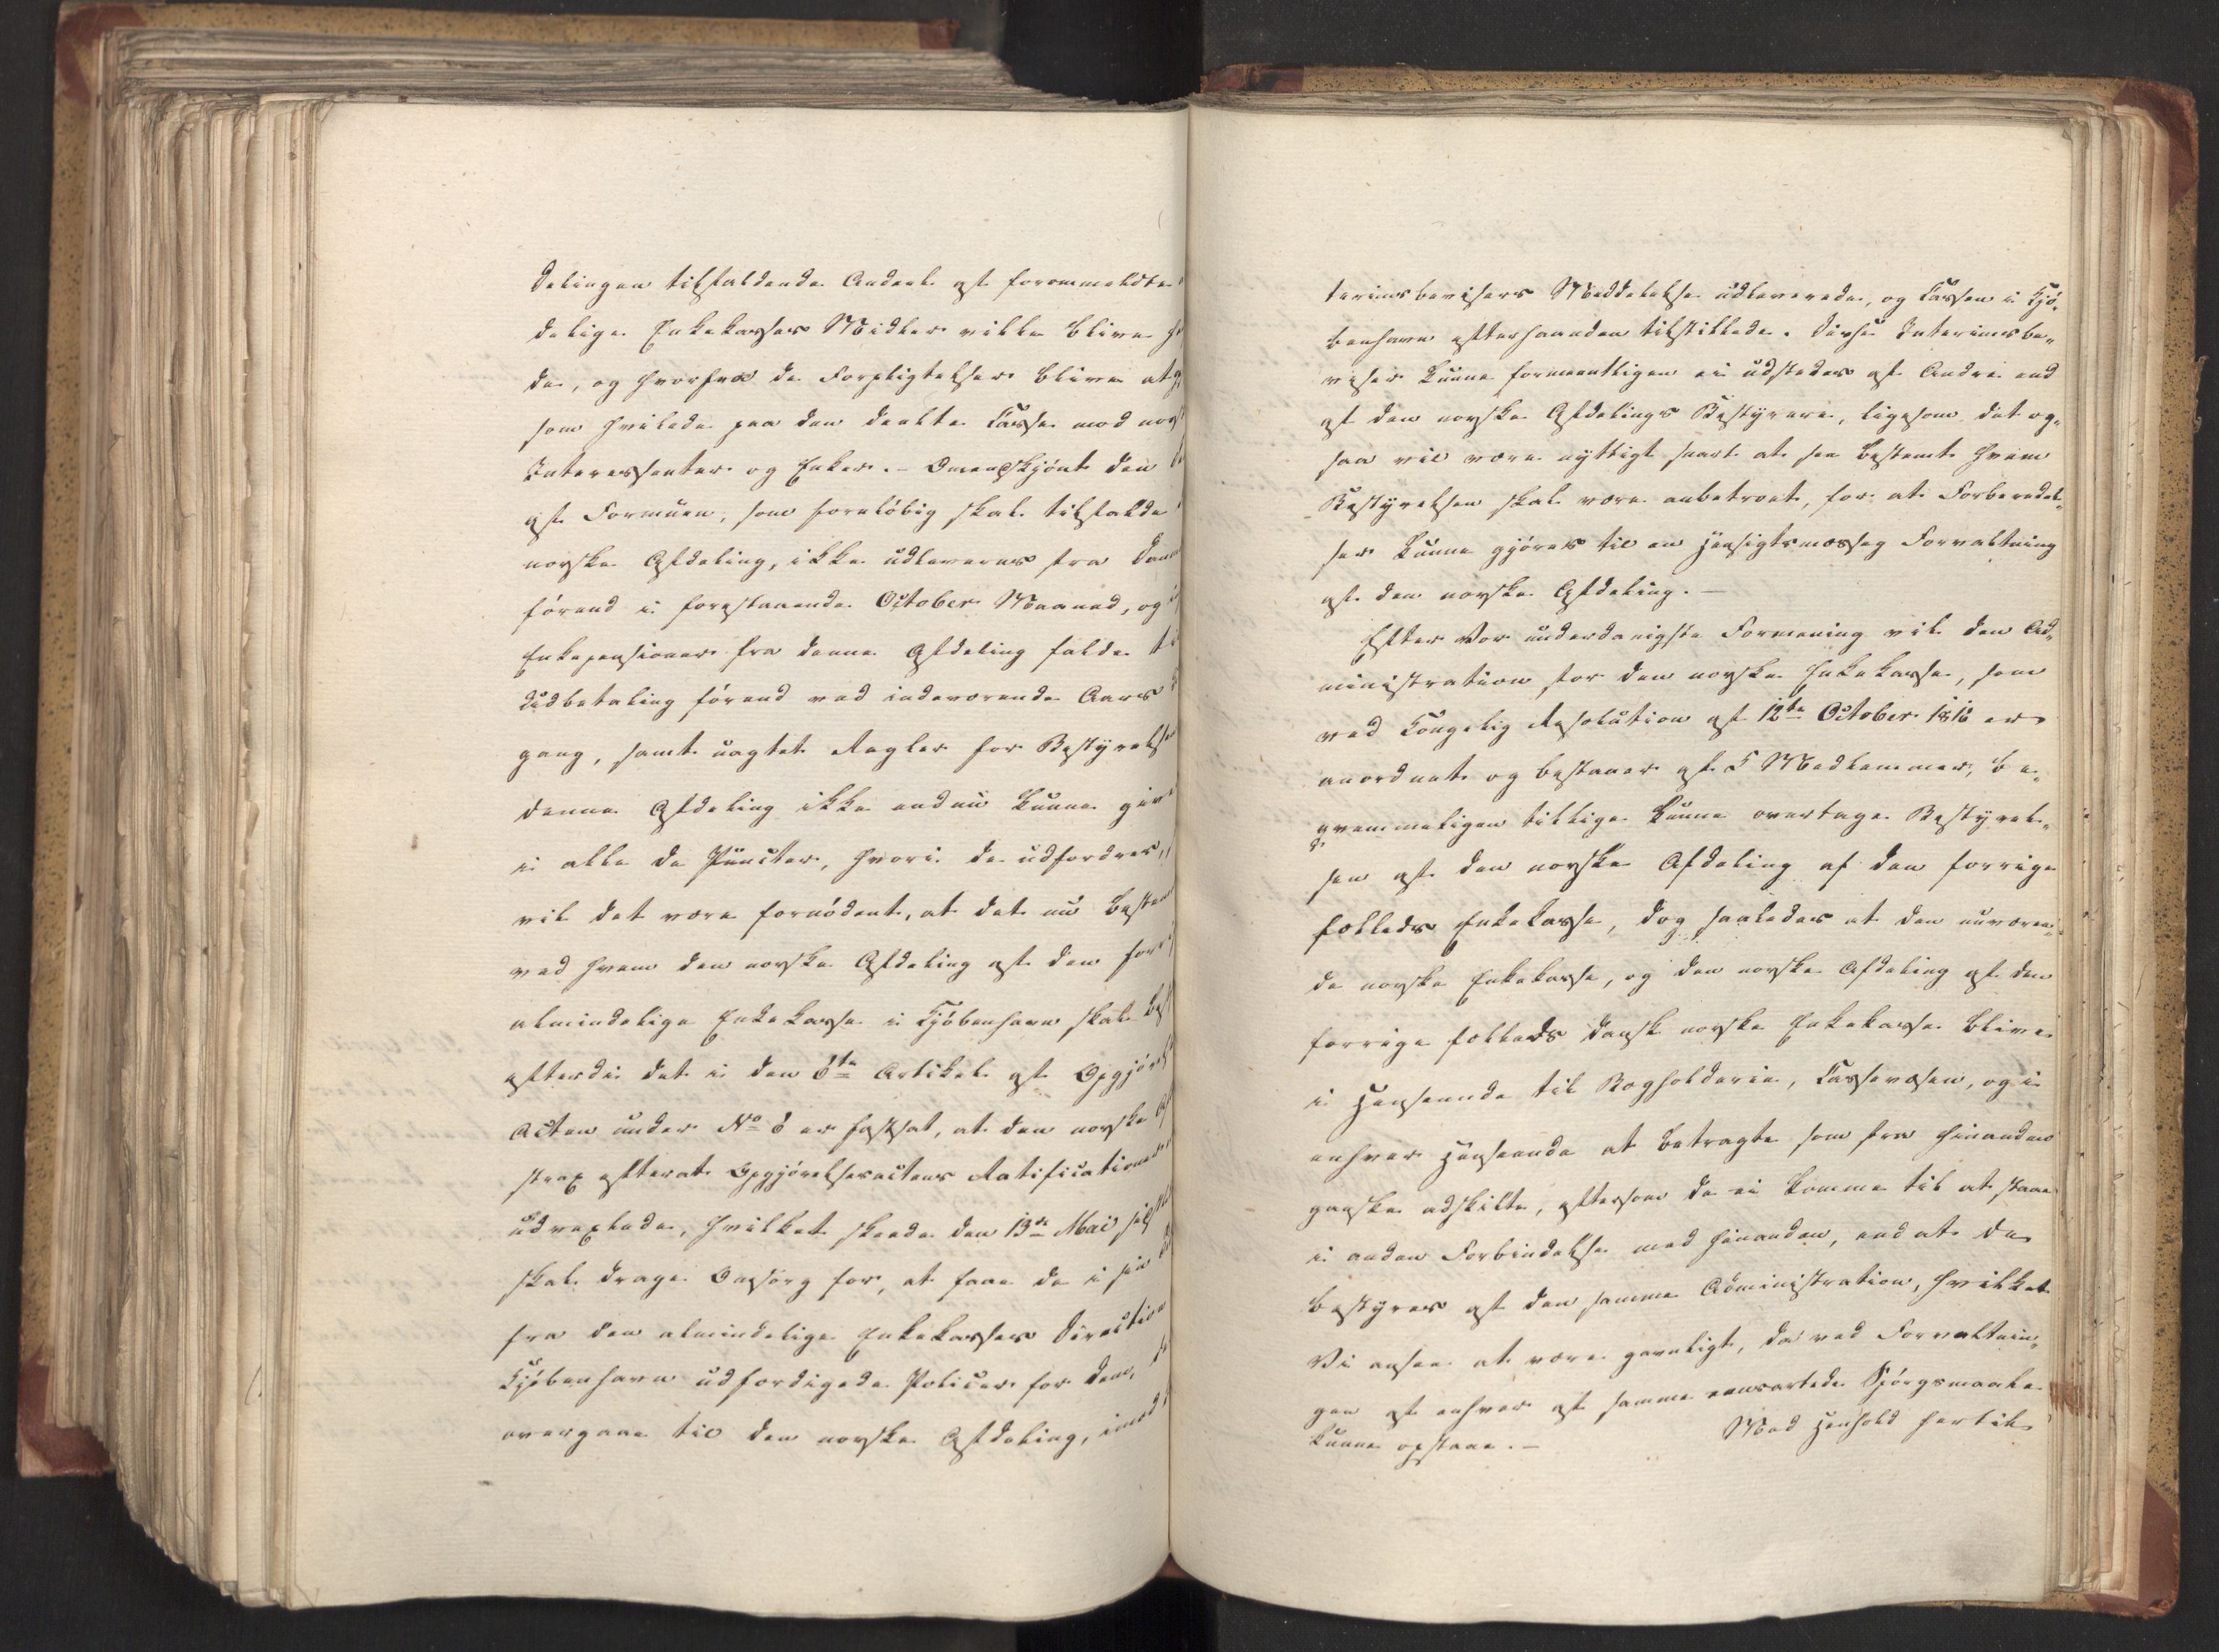 delingen tilfaldende Andeel af forommeldte
delige Enkekasses Midler ville blive
de, og hvorfra de Forpligtelser bliver at
som hvilede paa den deelte Casse mod
Interessenter og Enker. – Omendskjønt den
af Formuen, som foreløbig skal tilfalde
norske Afdeling, ikke udleveres fra
førend i forestaaende October Maaned, og
Enkepensioner fra denne Afdeling falde
Udbetaling førend ved indeværende Aars
gang, samt uagtet Regler for
denne Afdeling ikke endnu kunne
i alle de Puncter, hvori de udfordres,
vil det være fornødent, at det nu
ved hvem den norske Afdeling af den
almindelige Enkekasse i Kjøbenhavn skal
efterdi det i den 6te Artikel af
Acten under No 6 er fastsat, at den norske
strax efterat Opgjørelsesactens
udvexlede, hvilket skeede den 13de Mai
skal drage Omsorg for, at faae de i sin
fra den almindelige Enkekasses Direction
Kjøbenhavn udfærdigede Policer for dem,
overgaae til den norske Afdeling,
terimsbevisers Meddelelse udleverede, og Cassen i Kjø„
benhavn efterhaanden tilstillede. Disse Interimsbe„
viser kunne formeentligen ei udstedes af Andre end
af den norske Afdelings Bestyrere, ligesom det og„
saa vil være nyttigt snart at see bestemt hvem
Bestyrelsen skal være anbetroet, for at Forberedel„
ser kunne gjøres til en hensigtsmæssig Forvaltning
af den norske Afdeling. –
Efter Vor underdanigste Formening vil den Ad„
ministration for den norske Enkekasse, som
ved Kongelig Resolution af 12te October 1816 er
anordnet og bestaaer af 5 Medlemmer, be„
qvemmeligen tillige kunne overtage Bestyrel„
sen af den norske Afdeling af den forrige
fælleds Enkekasse, dog saaledes at den nuværen„
de norske Enkekasse, og den norske Afdeling af den
forrige fælleds dansk norske Enkekasse blive
i Henseende til Bogholderie, Cassevæsen, og i
enhver Henseende at betragte som fra hinanden
ganske adskilte, eftersom de ei komme til at staae
i anden Forbindelse med hinanden, end at de
bestyres af den samme Administration, hvilket
Vi ansee at være gavnligt, da ved Forvaltnin„
gen af enhver af samme eensartede Spørgsmaale
kunne opstaae. – Med Henhold hertil